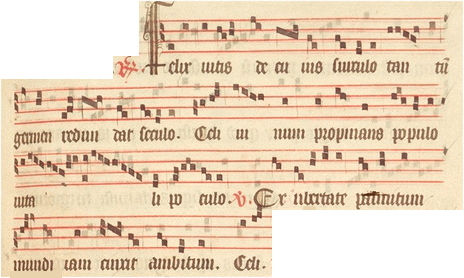 ℣. Felix uitis de cu ius surculo tan tū
germen redun dat seculo. Celi ui num propinans populo
uita li po culo. ℣. Ex ubertate palmitum
mundi iam cinxit ambitum. Celi.